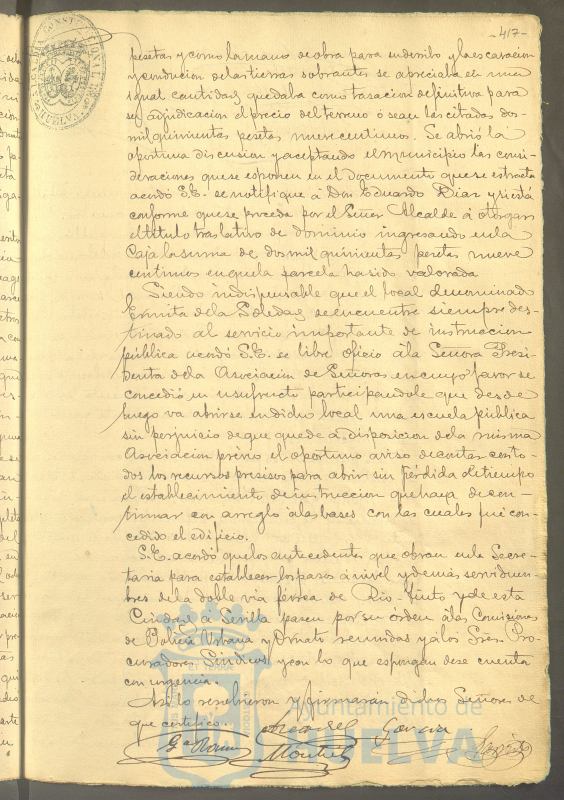 -417-
pesetas y como la mano de obra para su derribo y la escavacion
y conducion de las tierras sobrantes se apreciaba en una
igual cantidad, quedaba como tasacion definitiva para
su adjudicacion el precio del terreno ó sean las citadas dos-
mil quinientas pesetas nueve centimos. Se abrió la
oportuna discusion y aceptando el municipio las consi-
deraciones que se exponen en el documento que se estrata
acordó S.E. se notifique á Don Eduardo Diaz y si está
conforme que se proceda por el Señor Alcalde á otorgar
el titulo traslativo de dominio ingresando en la
Caja la suma de dos mil quinientas pesetas nueve
centimos en que la parcela ha sido valorada
Siendo indispensable que el local denominado
Ermita de la Soledad, se encuentre siempre des-
tinado al servicio importante de instruccion
pública acordó S.E. se libre oficio á la Señora Presi-
denta de la Asociacion de Señoras en cuyo favor se
concedió en usufructo participandole que desde
luego va abrirse en dicho local una escuela pública
sin perjuicio de que quede á disposicion de la misma
Asociacion previo el oportuno aviso de contar con to-
dos los recursos presisos para abrir sin pérdida de tiempo
el establecimiento de instruccion que haya de con-
tinuar con arreglo á las bases con las cuales fué con-
cedido el edificio.
S.E. acordó que los antecedentes que obran en la Secre-
taria para establecer los pasos á nivel y demas servidum-
bres de la doble via férrea de Rio-Tinto y de esta
Ciudad a Sevilla pasen por su orden á las Comisiones
de Policia Urbana y Ornato reunidas y á los Sres. Pro-
curadores Sindicos y con lo que espongan dese cuenta
con urgencia.
Asi lo resolvieron y firmaran dichos Señores de
que certifico.
Garcia
Ayuntamiento de
HUELVA